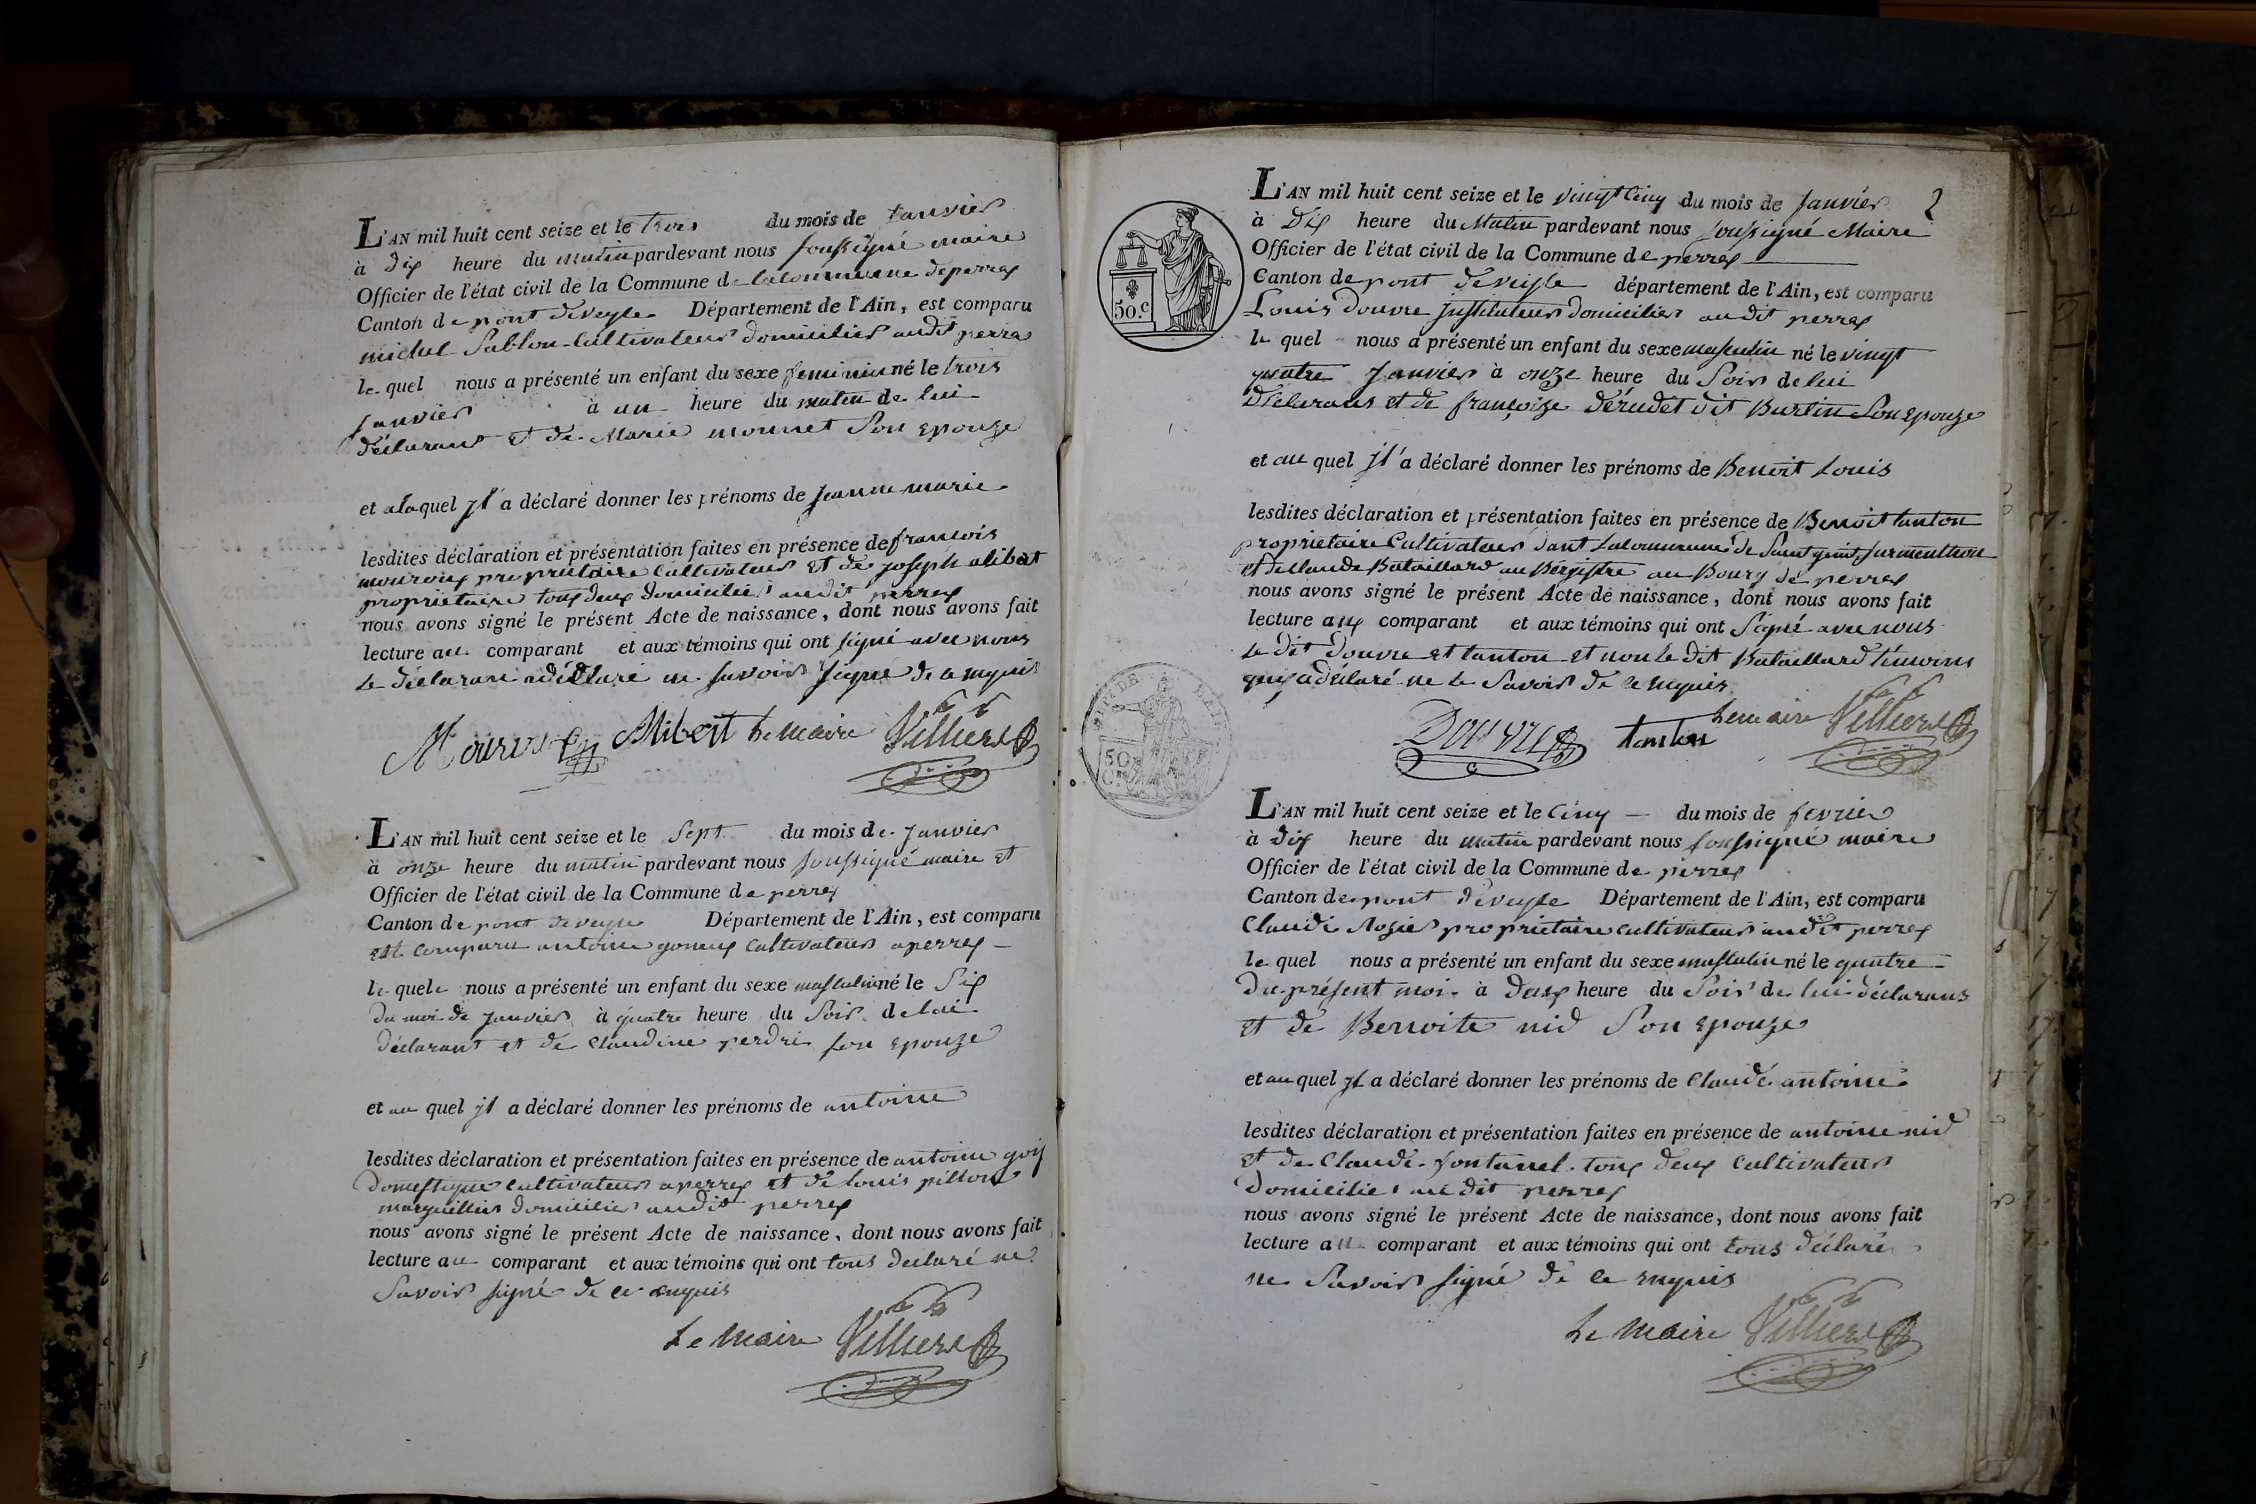 L'AN mil huit cent seize et le trois du mois de Janvier
à dix heure du matin pardevant nous soussigné maire
Officier de l'état civil de la Commune de la commune de perrex
Canton de pont deveyle Département de l'Ain, est comparu
michel Sablon Cultivateur domicilié audit perrex
le quel nous a présenté un enfant du sexe feminin né le trois
Janvier à un heure du matin de lui
déclarant et de Marie monnet Son epouze
et alaquel jl a déclaré donner les prénoms de jeanne marie
lesdites déclaration et présentation faites en présence de francois
propriétaire Cultivateur et de joseph alibert
propriétaire tous deux domiciliés audit perrex
nous avons signé le présent Acte de naissance, dont nous avons fait
lecture au comparant et aux témoins qui ont signé avec nous
le déclarant a déclaré ne savoir signe de ce enquis
Alibert Le maire Villiers
L'AN mil huit cent seize et le Sept du mois de Janvier
à onze heure du matin pardevant nous soussigné maire et
Officier de l'état civil de la Commune de perrex
Canton de pont deveyle Département de l'Ain, est comparu
est comparu antoine cultivateur a perrex
le quele nous a présenté un enfant du sexe masculin né le Six
du moi de Janvier à quatre heure du Soir de lui
déclarant et de Claudine perdrix son epouze
et au quel jl a déclaré donner les prénoms de antoine
lesdites déclaration et présentation faites en présence de antoine
Domestique cultivateur a perrex et de Louis pillon
marguillier domicilié audit perrex
nous avons signé le présent Acte de naissance, dont nous avons fait
lecture au comparant et aux témoins qui ont tous déclaré ne
Savoir signé de ce enquis
Le Maire Villiers
2
L'AN mil huit cent seize et le vingt Cinq du mois de Janvier
à Dix heure du Matin pardevant nous soussigné Maire
Officier de l'état civil de la Commune de perrex
Canton de pont deveyle département de l'Ain, est comparu
Louis Douvre jnstituteur domicilier audit perrex
le quel nous a présenté un enfant du sexe masculin né le vingt
quatre Janvier à onze heure du Soir de lui
Déclarant et de françoize dérudet dit Burlin Son epouze
et au quel jl a déclaré donner les prénoms de Benoit Louis
lesdites déclaration et présentation faites en présence de Benoit tanton
propriétaire Cultivateur dant la commune de Saint
et de Claude Bataillard au Bourg de perrex
nous avons signé le présent Acte de naissance, dont nous avons fait
lecture aux comparant et aux témoins qui ont Signé avec nous
le dit Douvre et tanton et non le dit Bataillard témoins
qui a déclaré ne le Savoir de ce enquis
Douvre tanton Le maire Villiers
50.c
50
L'AN mil huit cent seize et le Cinq du mois de fevrier
à dix heure du matin pardevant nous soussigné maire
Officier de l'état civil de la Commune de perrex
Canton de pont deveyle Département de l'Ain, est comparu
Claude Rosier propriétaire cultivateur audit perrex
le quel nous a présenté un enfant du sexe masculin né le quatre
Du présent moi à deux heure du Soir de lui déclarant
et de Benoite nid Son epouze
et au quel jl a déclaré donner les prénoms de Claude antoine
lesdites déclaration et présentation faites en présence de antoine nid
et de Claude fontanel tous deux cultivateur
domicilié audit perrex
nous avons signé le présent Acte de naissance, dont nous avons fait
lecture au comparant et aux témoins qui ont tous déclaré
ne Savoir signé de ce enquis
Le Maire Villiers